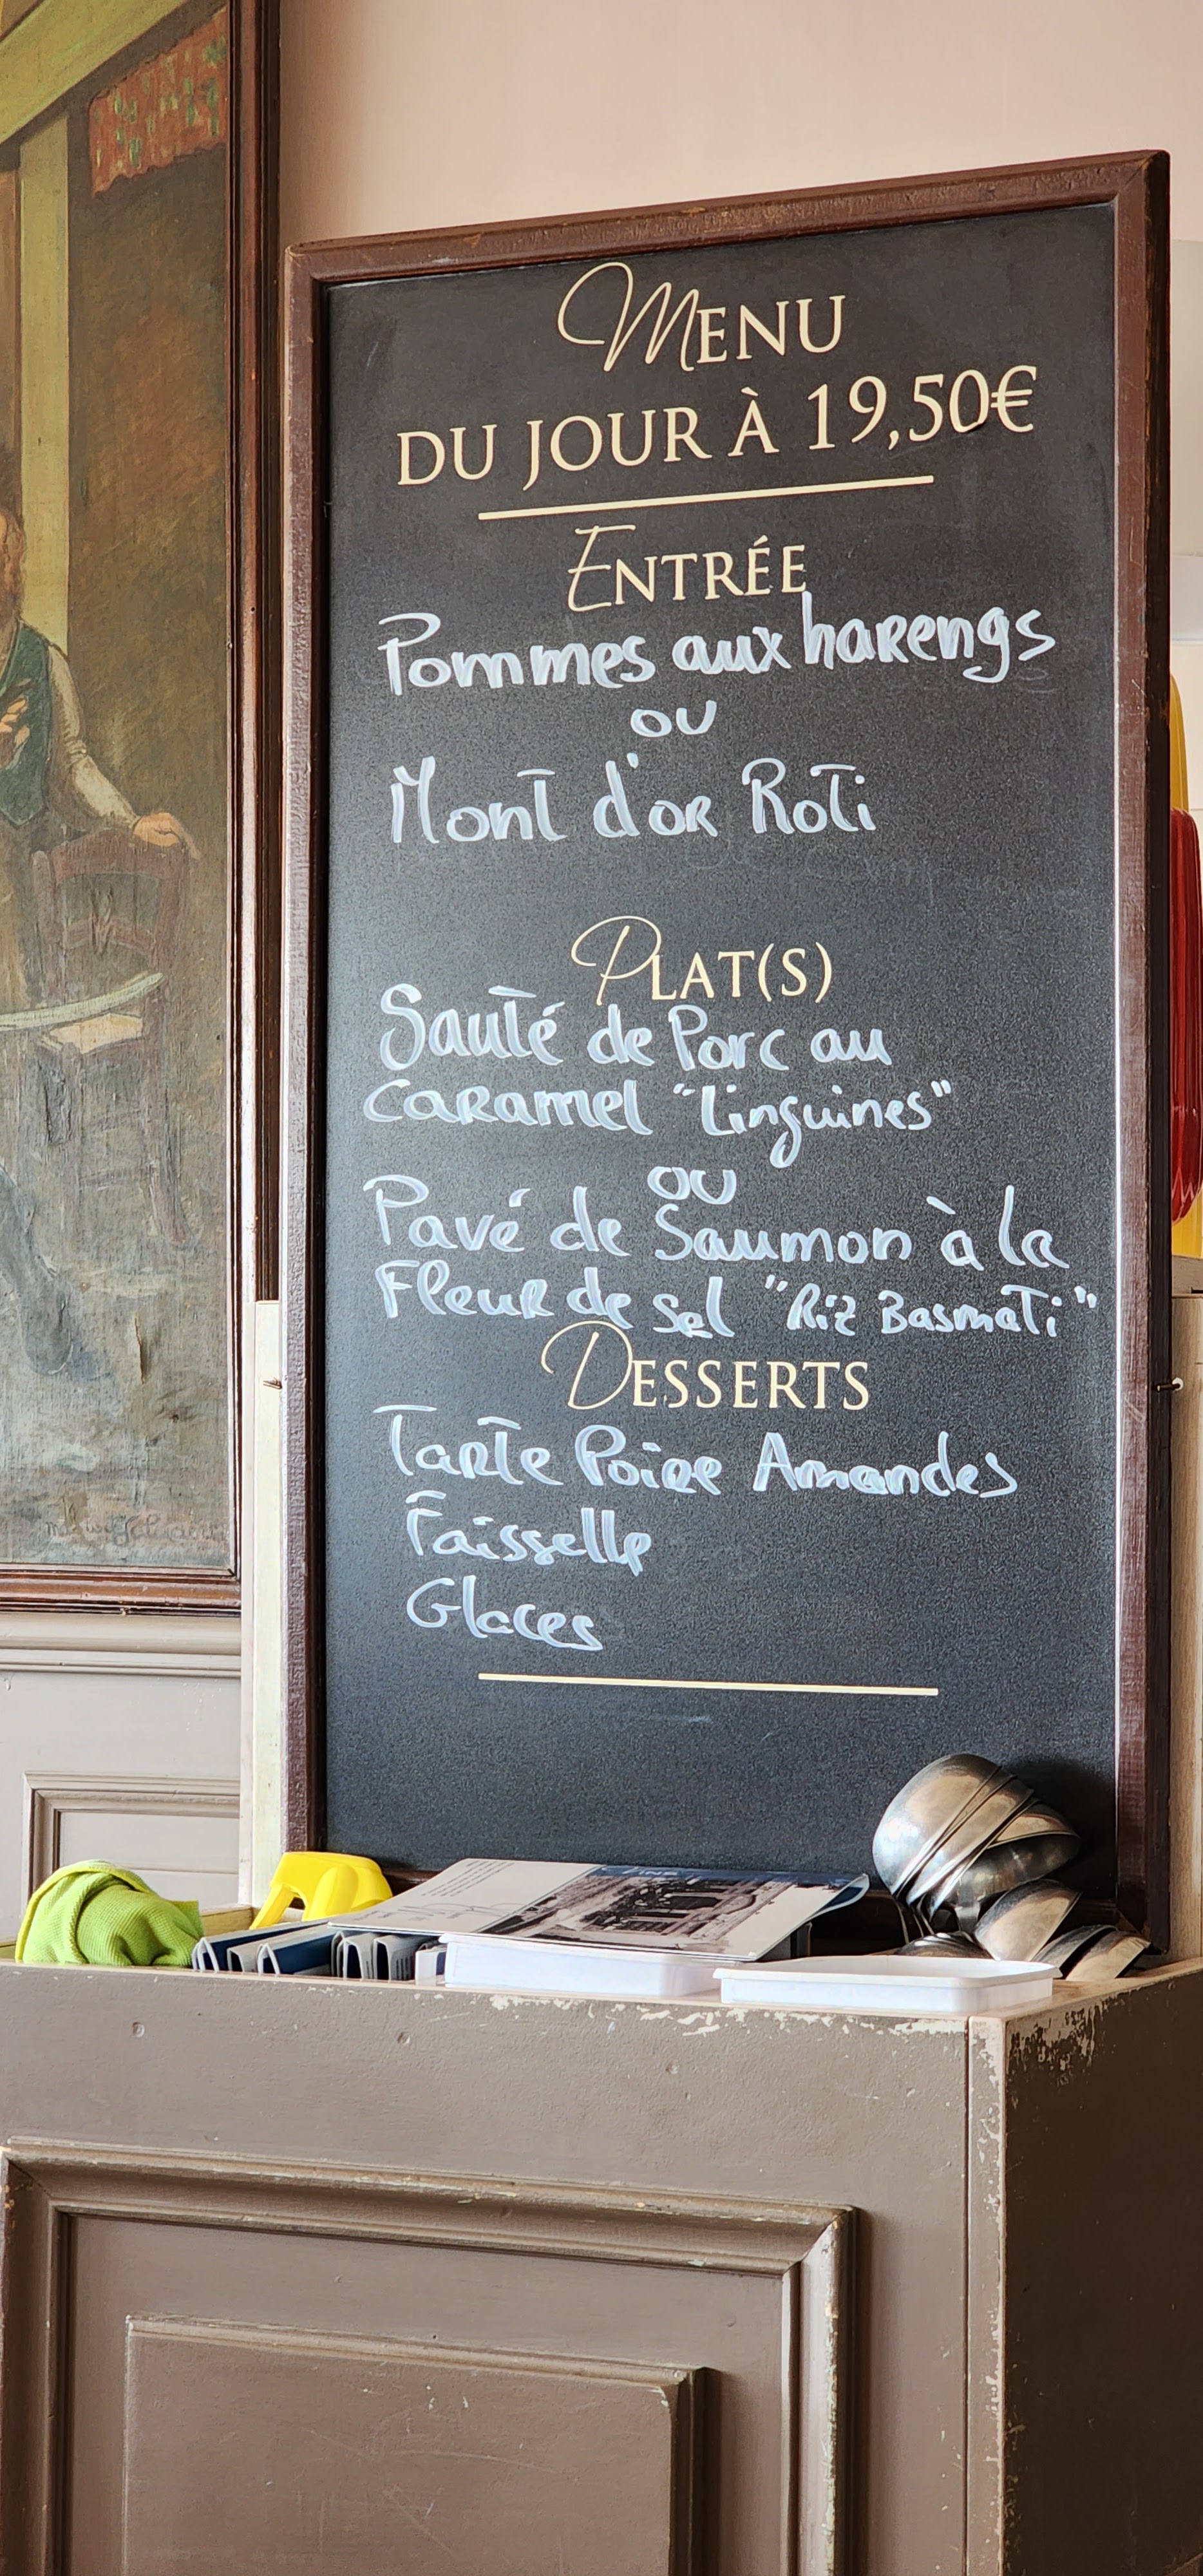 MENU
DU JOUR À 19,50€
ENTRÉE
Pommes aux harengs
ou
Mont d'or Roti
PLAT(S)
Sauté de Porc au
Caramel "Linguines"
ou
Pavé de Saumon à la
Fleur de sel "Riz Basmati"
DESSERTS
Tarte Poire Amandes
Faisselle
Glaces